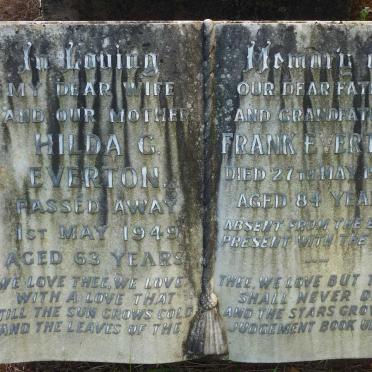 In Loving
MY DEAR WIFE
AND OUR MOTHER
HILDA G.
EVERTON.
PASSED AWAY
1ST MAY 1949
AGED 63 YEARS
WE LOVE THEE, WE LOVE
WITH A LOVE THAT
TILL THE SUN GROWS COLD
AND THE LEAVES OF THE
Memory
OUR DEAR
AND
FRANK
DIED 27TH MAY
AGED 84
ABSENT FROM THE
PRESENT WITH THE
THEE, WE LOVE BUT
SHALL NEVER
AND THE STARS
JUDGEMENT BOOK